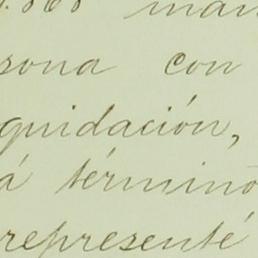 sona con
quidación,
á término
representé